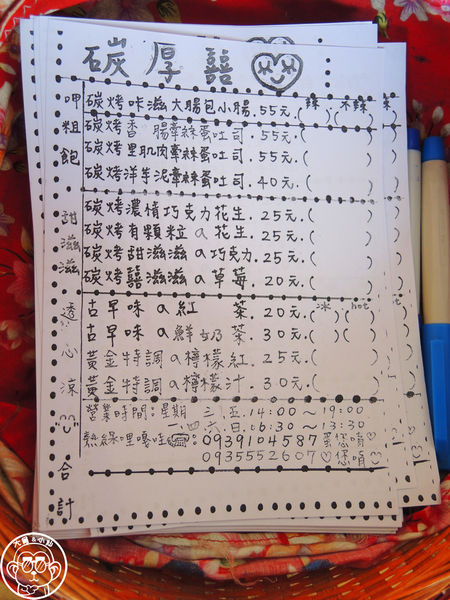 碳厚囍
呷粗飽
碳烤咔滋大腸包小腸.55元.(辣 )(不辣 )
碳烤香腸牽絲蛋吐司.55元.( )
碳烤里肌肉牽絲蛋吐司.55元.( )
碳烤洋芋泥牽絲蛋吐司.40元.( )
甜滋滋
碳烤濃情巧克力花生.25元.( )
碳烤有顆粒a花生.25元.( )
碳烤甜滋滋a巧克力.25元.( )
碳烤囍滋滋a草莓.20元.( )
透心涼
古早味a紅茶.20元.(冰 )(hot )
古早味a鮮奶茶.30元.( )( )
黃金特調a檸檬紅.25元.( )
黃金特調a檸檬汁.30元.( )
營業時間:星期三.五.14:00~19:00
一.四.六.日.06:30~13:30
熱線哩嘎哇☎:0939104587 蛋您唷♡
0935552607 ♡您唷
合計
大腸&小肚